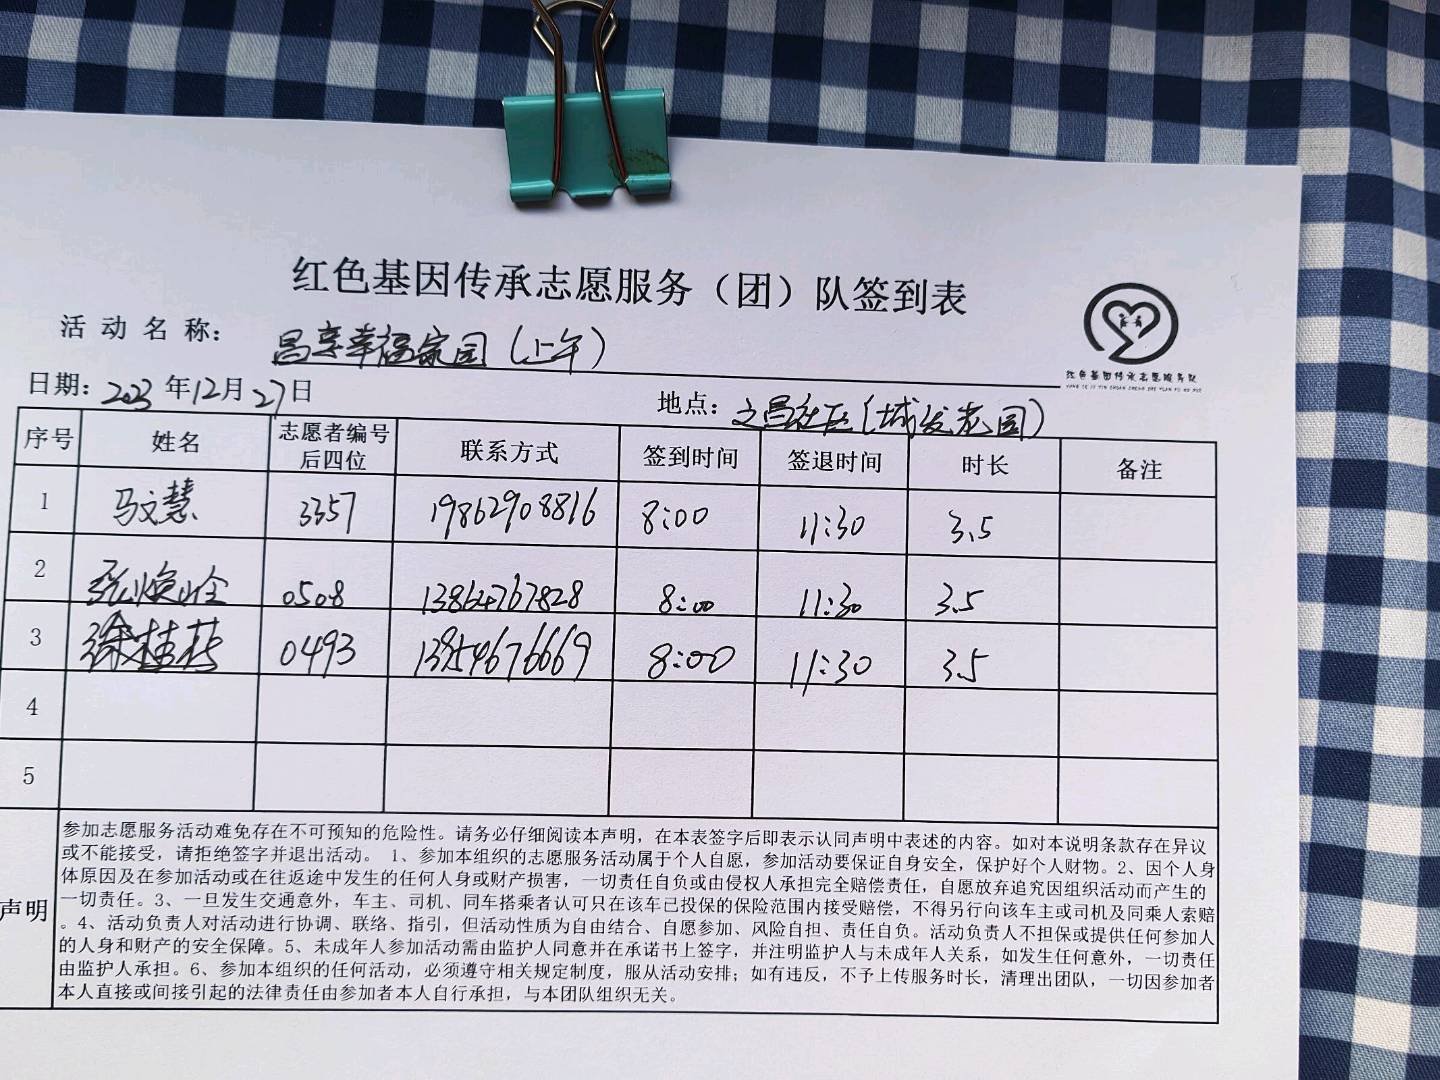 红色基因传承志愿服务（团）队签到表
活动名称：昌享幸福家园（上午）
红色基因传承志愿服务队
日期：2023年12月27日 地点：文昌社区（城发花园）
序号 姓名 志愿者编号后四位 联系方式 签到时间 签退时间 时长 备注
1 马文慧 3357 19862908816 8:00 11:30 3.5
2 张焕 0508 13864767828 8:00 11:30 3.5
3 徐桂花 0493 13954676669 8:00 11:30 3.5
4
5
声明
参加志愿服务活动难免存在不可预知的危险性。请务必仔细阅读本声明，在本表签字后即表示认同声明中表述的内容。如对本说明条款存在异议
或不能接受，请拒绝签字并退出活动。 1、参加本组织的志愿服务活动属于个人自愿，参加活动要保证自身安全，保护好个人财物。2、因个人身
体原因及在参加活动或在往返途中发生的任何人身或财产损害，一切责任自负或由侵权人承担完全赔偿责任，自愿放弃追究因组织活动而产生的
一切责任。3、一旦发生交通意外，车主、司机、同车搭乘者认可只在该车已投保的保险范围内接受赔偿，不得另行向该车主或司机及同乘人索赔
。4、活动负责人对活动进行协调、联络、指引，但活动性质为自由结合、自愿参加、风险自担、责任自负。活动负责人不担保或提供任何参加人
的人身和财产的安全保障。5、未成年人参加活动需由监护人同意并在承诺书上签字，并注明监护人与未成年人关系，如发生任何意外，一切责任
由监护人承担。6、参加本组织的任何活动，必须遵守相关规定制度，服从活动安排；如有违反，不予上传服务时长，清理出团队，一切因参加者
本人直接或间接引起的法律责任由参加者本人自行承担，与本团队组织无关。